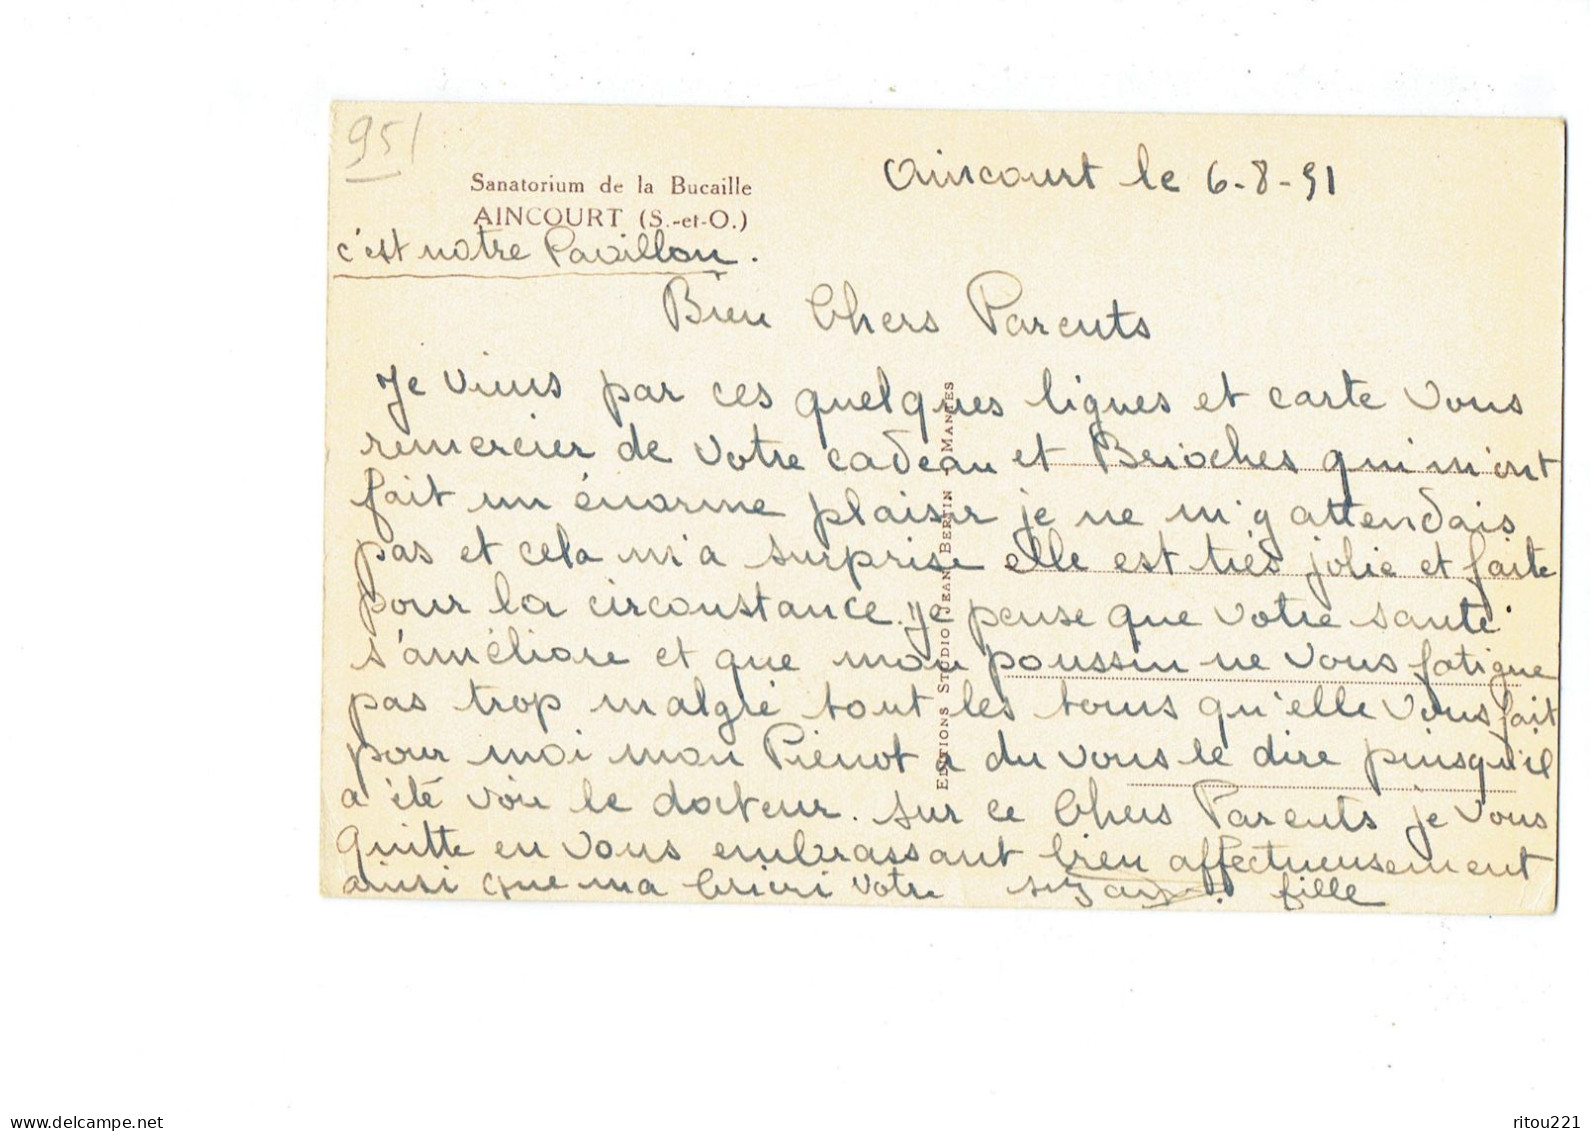 951
Sanatorium de la Bucaille
AINCOURT (S.-et-O.)
Aincourt le 6-8-51
c'est notre Pavillon.
Bien Chers Parents
Je viens par ces quelques lignes et carte vous
remercier de votre cadeau et Brioches qui m'ont
fait un énorme plaisir je ne m'y attendais
pas et cela m'a surprise elle est très jolie et faite
pour la circonstance. Je pense que votre santé
s'améliore et que mon poussin ne vous fatigue
pas trop malgré tout les tours qu'elle vous fait
pour moi mon Pierrot a du vous le dire puisqu'il
a été voir le docteur. Sur ce Chers Parents je vous
quitte en vous embrassant bien affectueusement
ainsi que ma votre fille
EDITIONS STUDIO JEAN BERTIN - MANTES
delcampe.net
ritou221